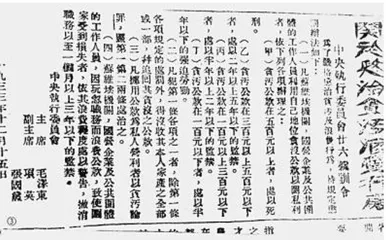 關於懲治貪污浪費行為
中央執行委員會廿六號訓令
為了嚴格懲治貪污及浪費行為,特規定懲
罰辦法如下:
(一)凡蘇維埃機關,國營企業及公共團
體的工作人員利用自己地位貪沒公款以圖私利
者,依下列各項辦理之:
(甲)貪污公款在五百元以上者,處以死
刑。
(乙)貪污公款在三百元以上五百元以下
者,處以二年以上五年以下的監禁。
(丙)貪污公款在一百元以上三百元以下
者,處以半年以上二年以下的監禁。
(丁)貪污公款在一百元以下者,處以半
年以下的強迫勞動。
(二)凡犯第一條各項之一者,除第一條
各項規定的處罰外,得沒收其本人家產之全部
或一部,并追回其貪沒之公款。
(三)凡挪用公款為私人營利者以貪污論
罪,照第一第二兩條處治之。
(四)蘇維埃機關,國營企業及公共團體
的工作人員,因玩忽職務而浪費公款,致使國
家受到損失者,依其浪費程度處以警告,撤消
職務以至一個月以上三年以下的監禁。
中央執行委員會
主席 毛澤東
副主席 項英
張國燾
一九三三年十二月十五日
③